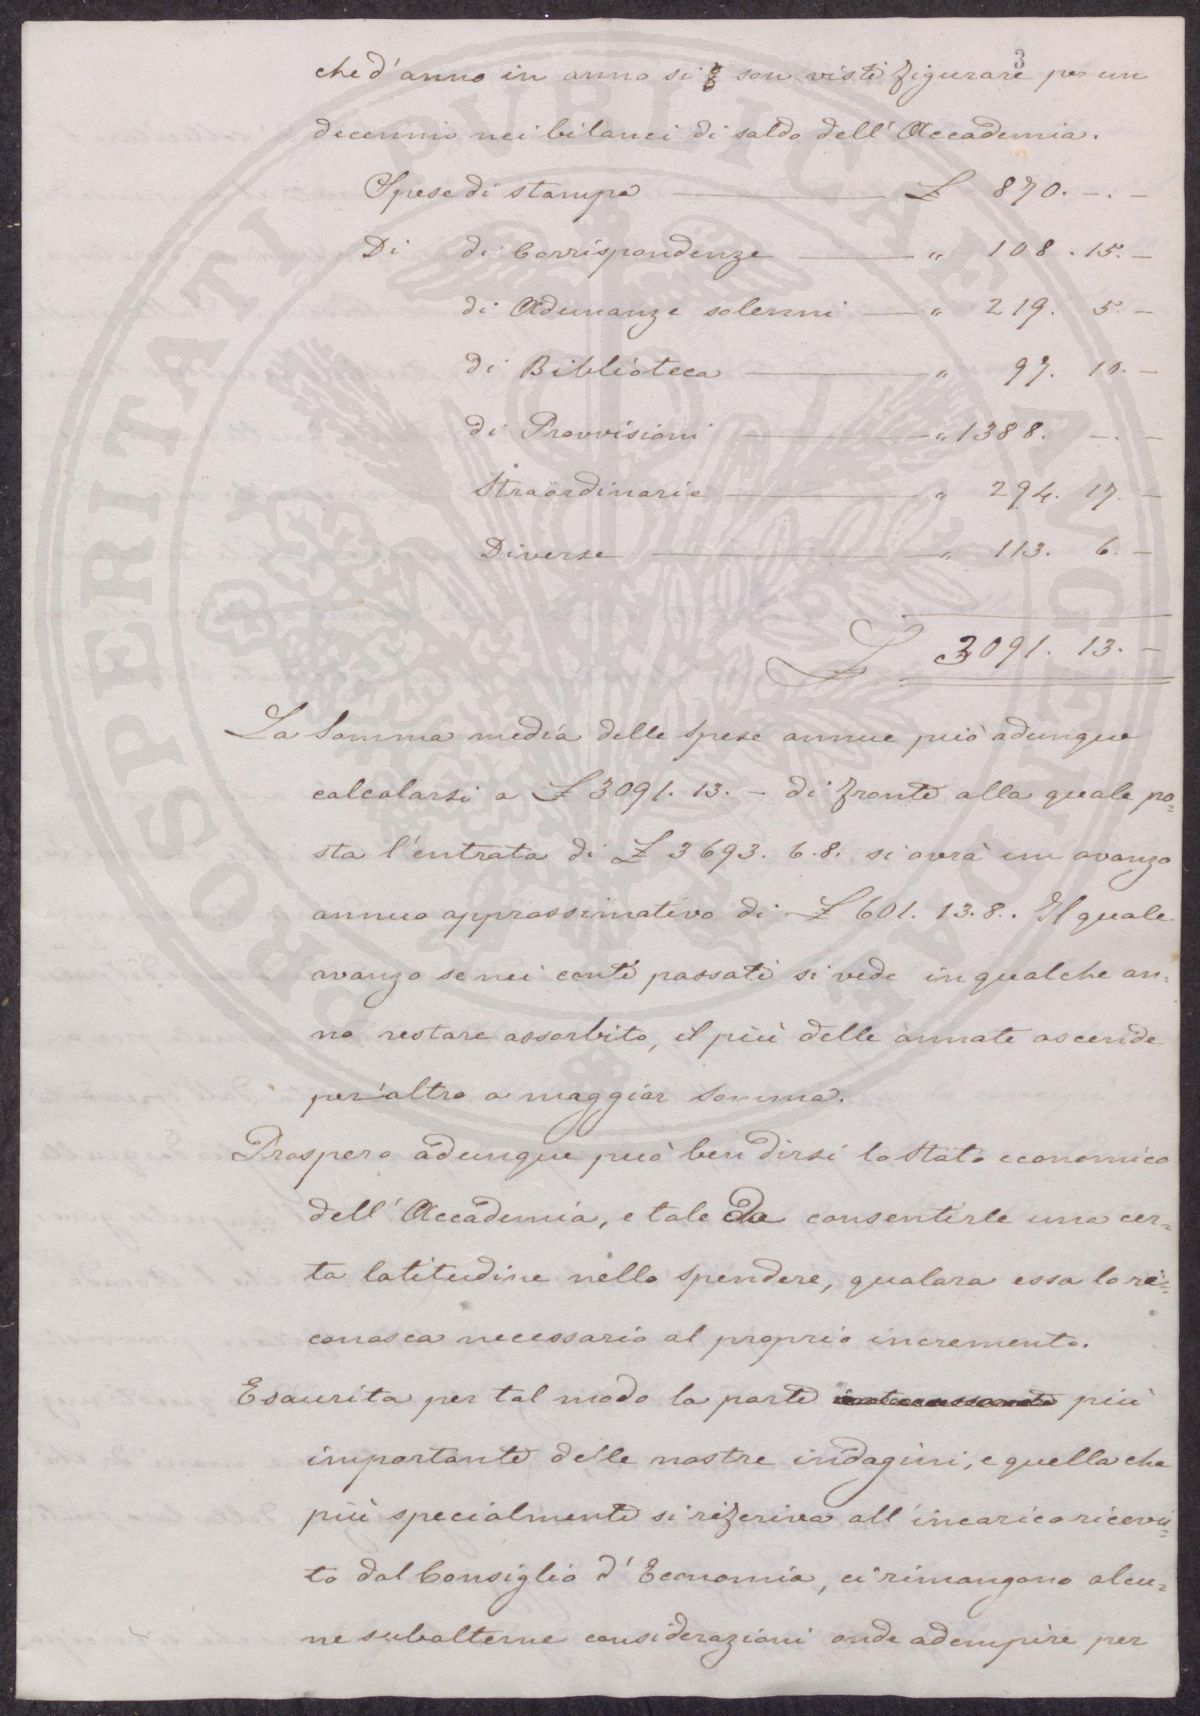 3
che d'anno in anno si son visti figurare per un
decennio nei bilanci di saldo dell'Accademia.
Spese di stampa £ 870. -. -
Di di Corrispondenze " 108. 15. -
di Adunanze solenni " 219. 5. -
di Biblioteca " 97. 10. -
di Provvisioni " 1388. -. -
Straordinarie " 294. 17. -
Diverse " 113. 6. -
£ 3091. 13. -
La Somma media delle spese annue può adunque
calcolarsi a £ 3091. 13. - di fronte alla quale po=
sta l'entrata di £ 3693. 6. 8. si avrà un avanzo
annuo approssimativo di £ 601. 13. 8.. Il quale
avanzo se nei conti passati si vede in qualche an=
no restare assorbito, il più delle annate ascende
per altro a maggior somma.
Prospero adunque può ben dirsi lo stato economico
dell'Accademia, e tale da consentirle una cer=
ta latitudine nello spendere, qualora essa lo ri=
conosca necessario al proprio incremento.
Esaurita per tal modo la parte più
importante delle nostre indagini, e quella che
più specialmente si riferiva all'incarico ricevu=
to dal Consiglio d'Economia, ci rimangono alcu=
ne subalterne considerazioni onde adempire per
PROSPERITATI PVBLICAE AVGENDAE